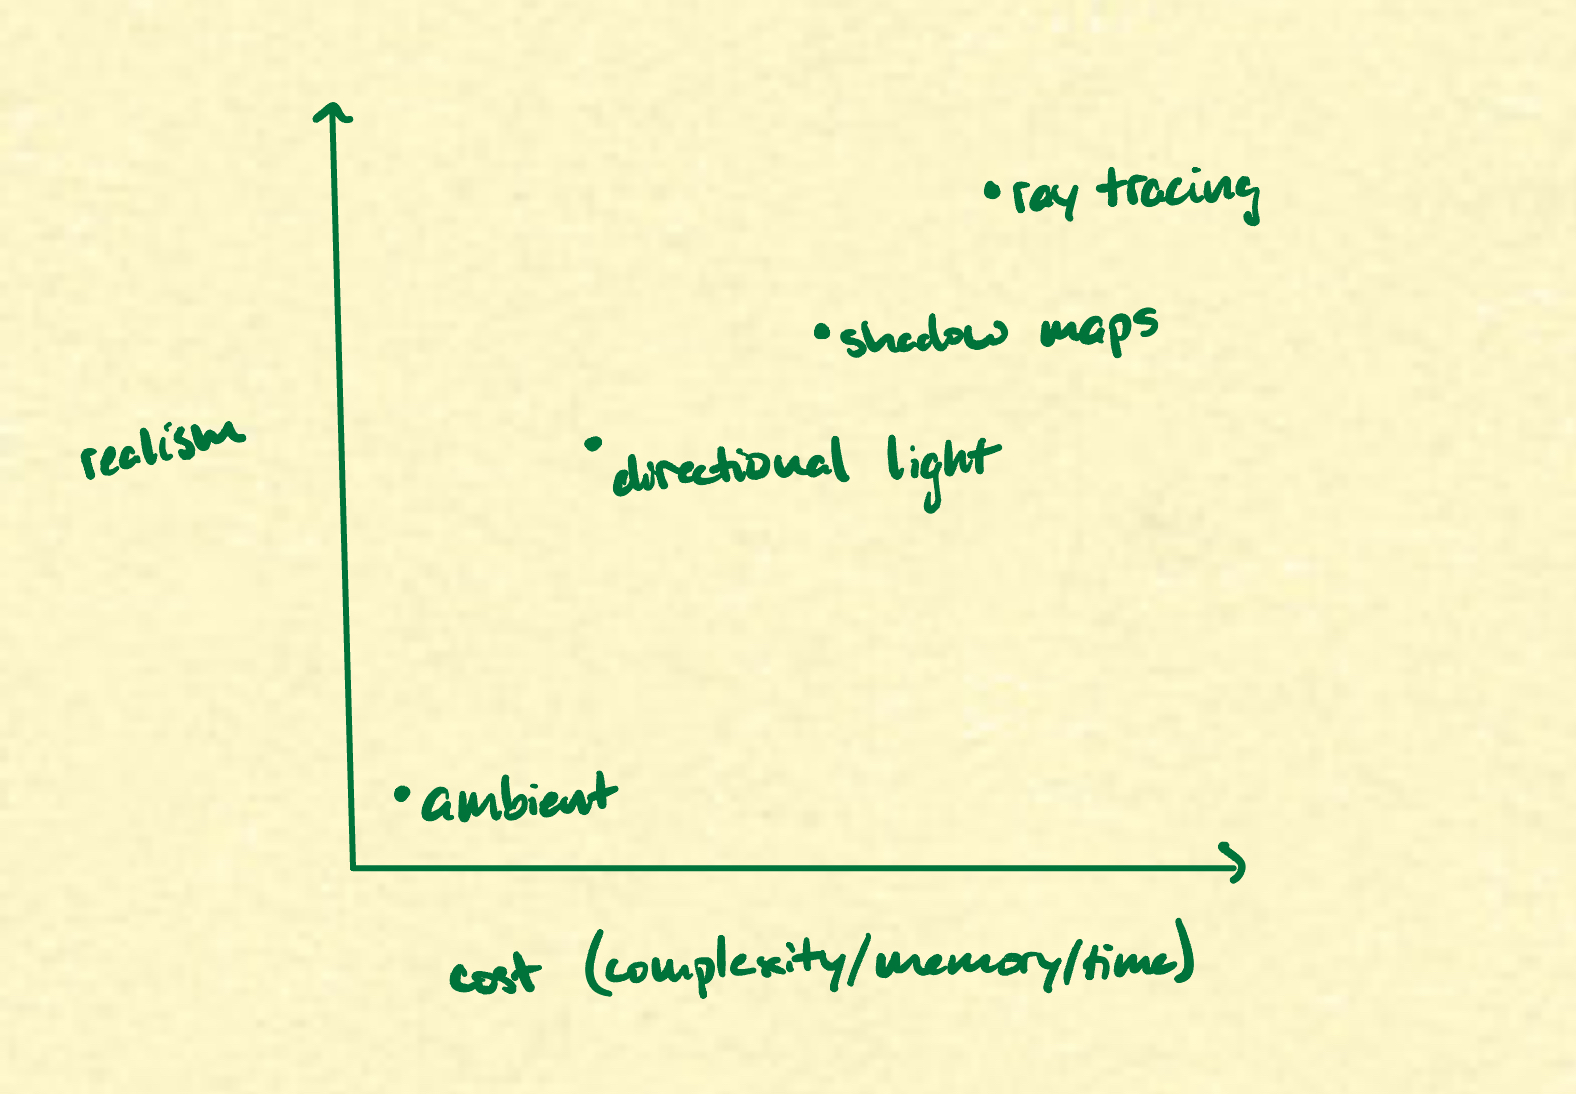 ray tracing
shadow maps
realism
directional light
ambient
cost (complexity/memory/time)